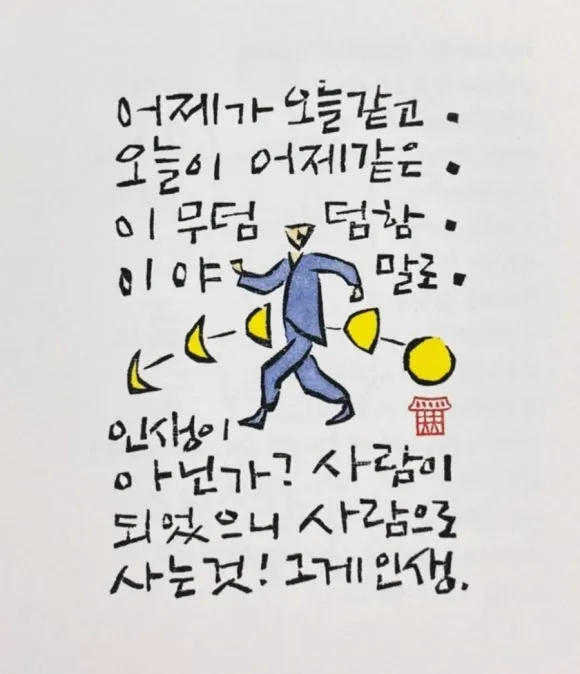 어제가 오늘같고.
오늘이 어제같은.
이 무덤 덤함.
이야 말로.
인생이
아닌가? 사람이
되었으니 사람으로
사는것! 그게 인생.